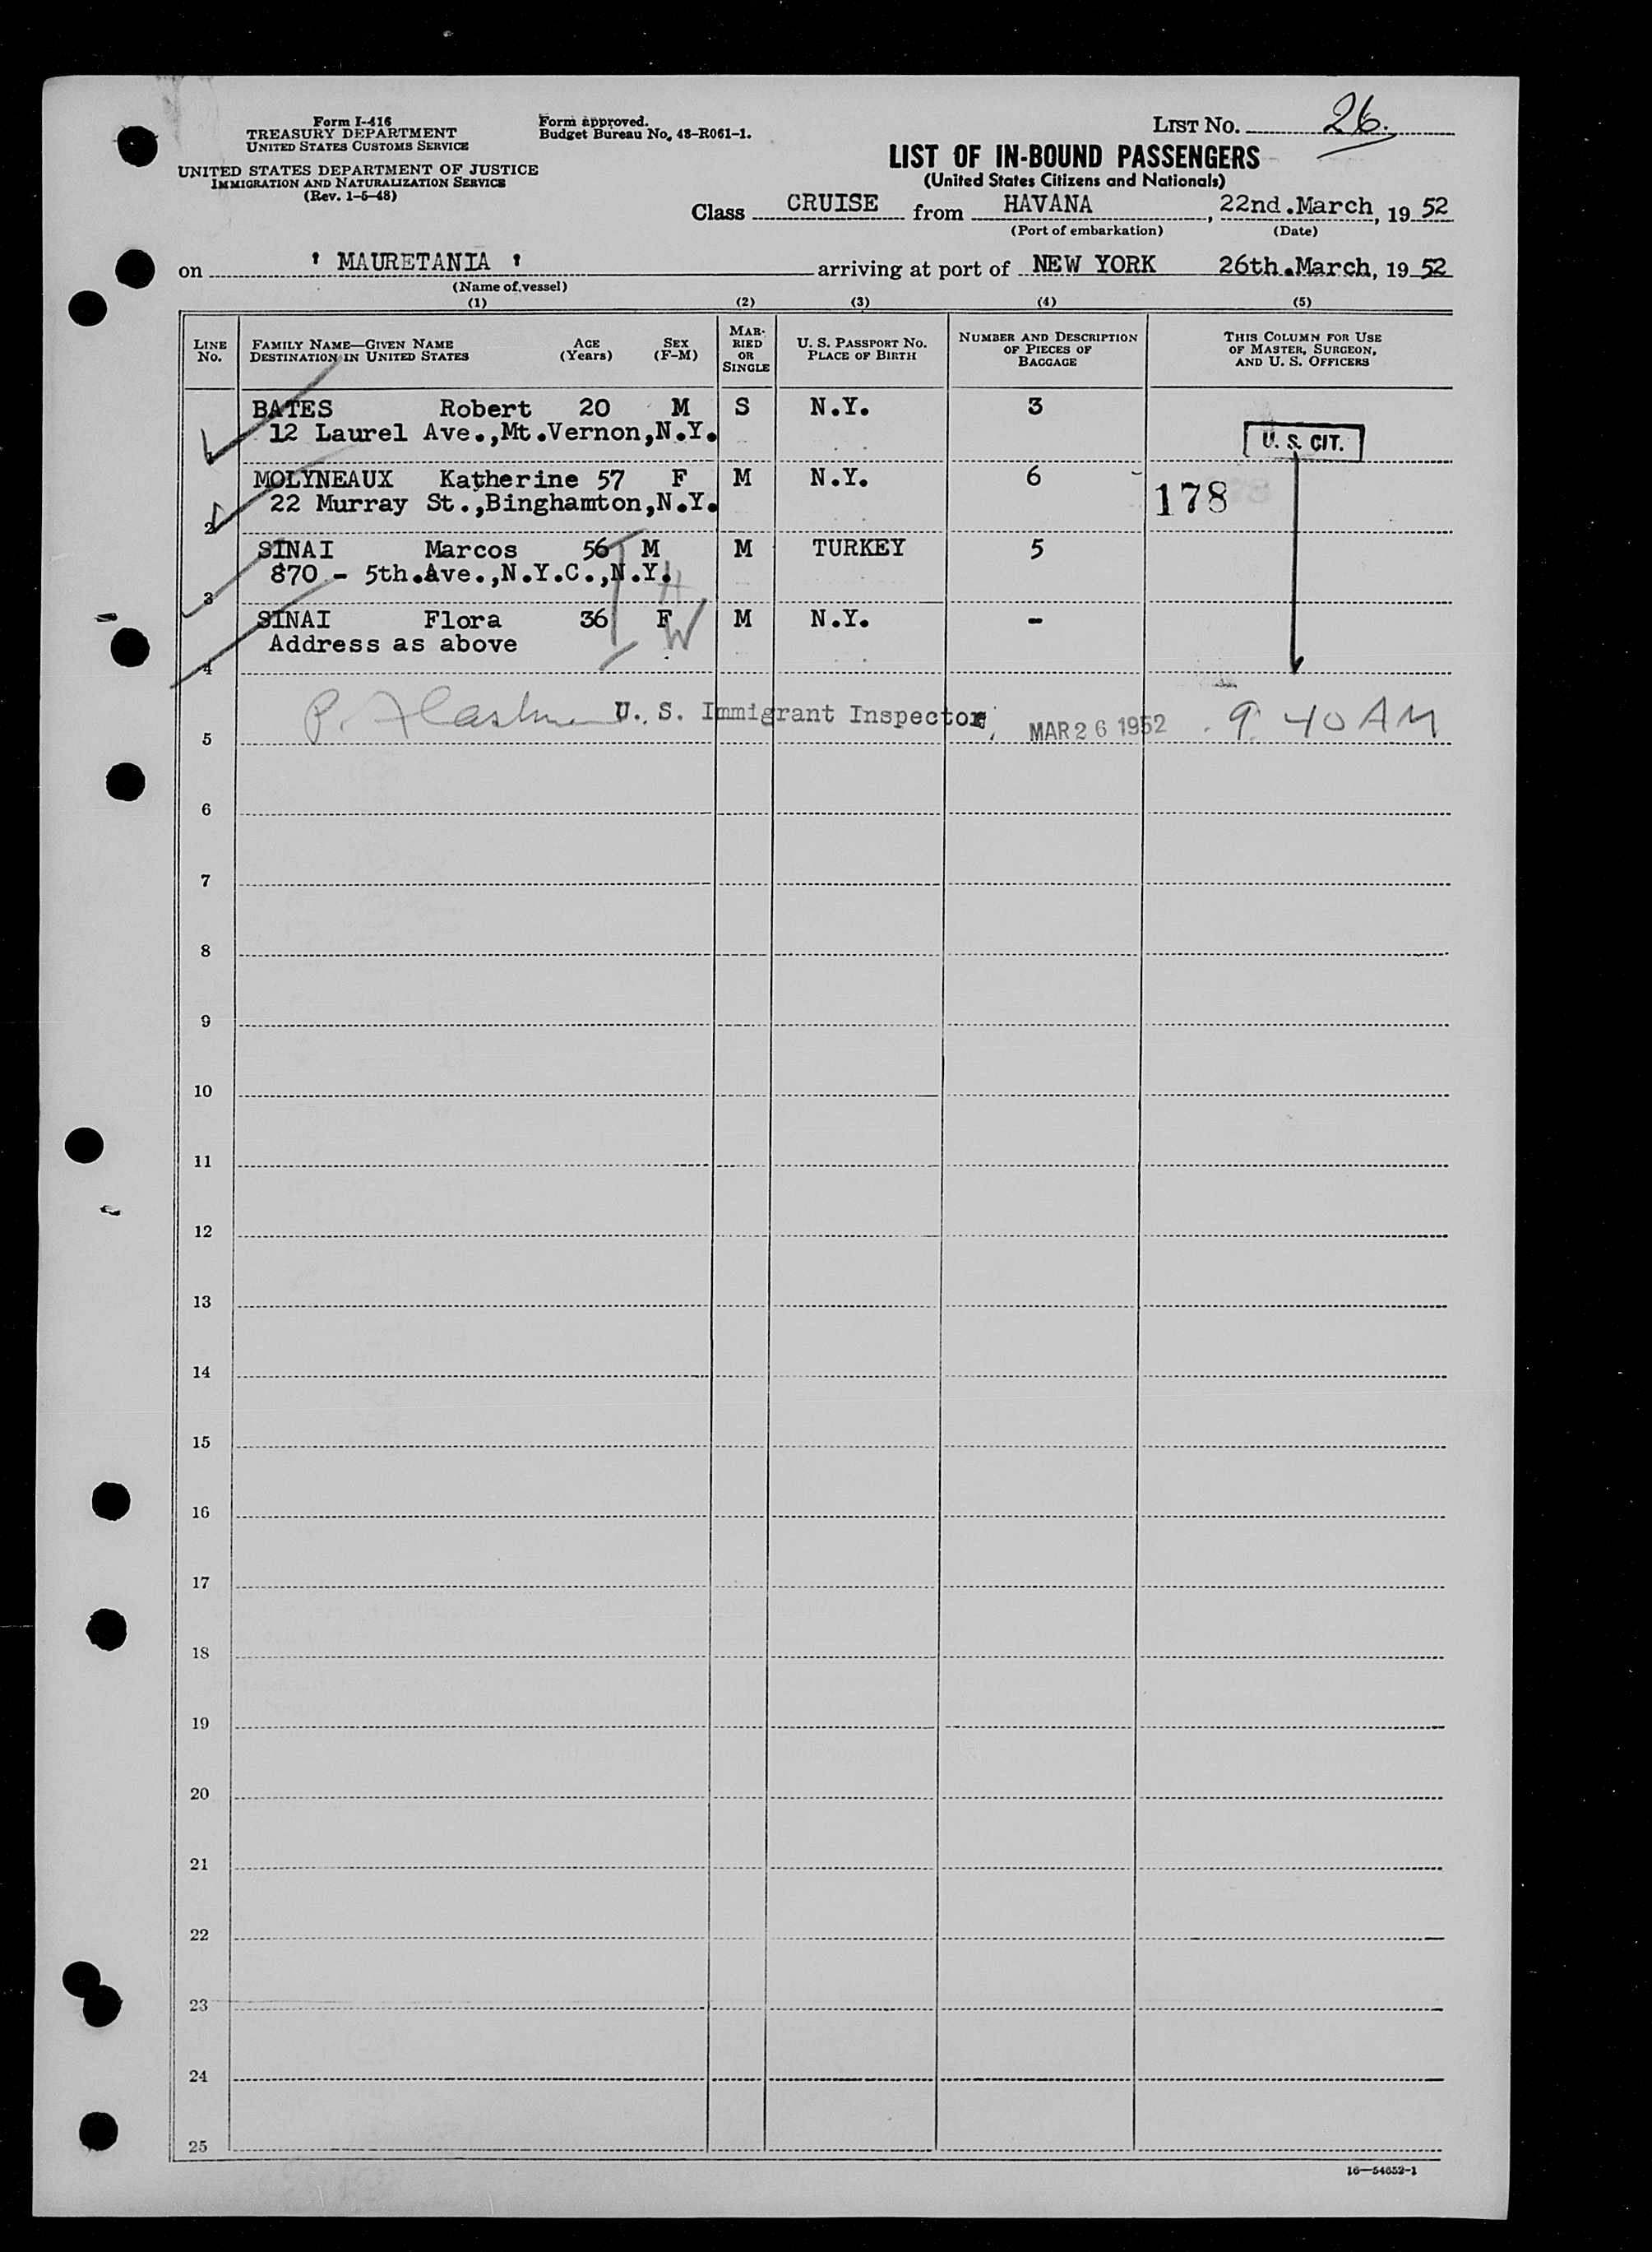 Form I-416
TREASURY DEPARTMENT
UNITED STATES CUSTOMS SERVICE
UNITED STATES DEPARTMENT OF JUSTICE
IMMIGRATION AND NATURALIZATION SERVICE
(Rev. 1-5-48)
Form approved.
Budget Bureau No. 43-R061-1.
LIST No. 26.
LIST OF IN-BOUND PASSENGERS
(United States Citizens and Nationals)
Class CRUISE from HAVANA, 22nd.March, 19 52
(Port of embarkation) (Date)
on ' MAURETANIA ' arriving at port of NEW YORK 26th.March, 19 52
(Name of vessel)
(1) (2) (3) (4) (5)
LINE No. FAMILY NAME—GIVEN NAME DESTINATION IN UNITED STATES AGE (Years) SEX (F-M) MARRIED OR SINGLE U. S. PASSPORT No. PLACE OF BIRTH NUMBER AND DESCRIPTION OF PIECES OF BAGGAGE THIS COLUMN FOR USE OF MASTER, SURGEON, AND U. S. OFFICERS
BATES Robert 20 M S N.Y. 3
12 Laurel Ave.,Mt.Vernon,N.Y. U. S. CIT.
1
MOLYNEAUX Katherine 57 F M N.Y. 6
22 Murray St.,Binghamton,N.Y. 178
2
SINAI Marcos 56 M M TURKEY 5
870 - 5th.Ave.,N.Y.C.,N.Y. H
3
SINAI Flora 36 F M N.Y. -
Address as above W
4
U. S. Immigrant Inspector, MAR 26 1952 9:40 AM
5
6
7
8
9
10
11
12
13
14
15
16
17
18
19
20
21
22
23
24
25
16—54652-1